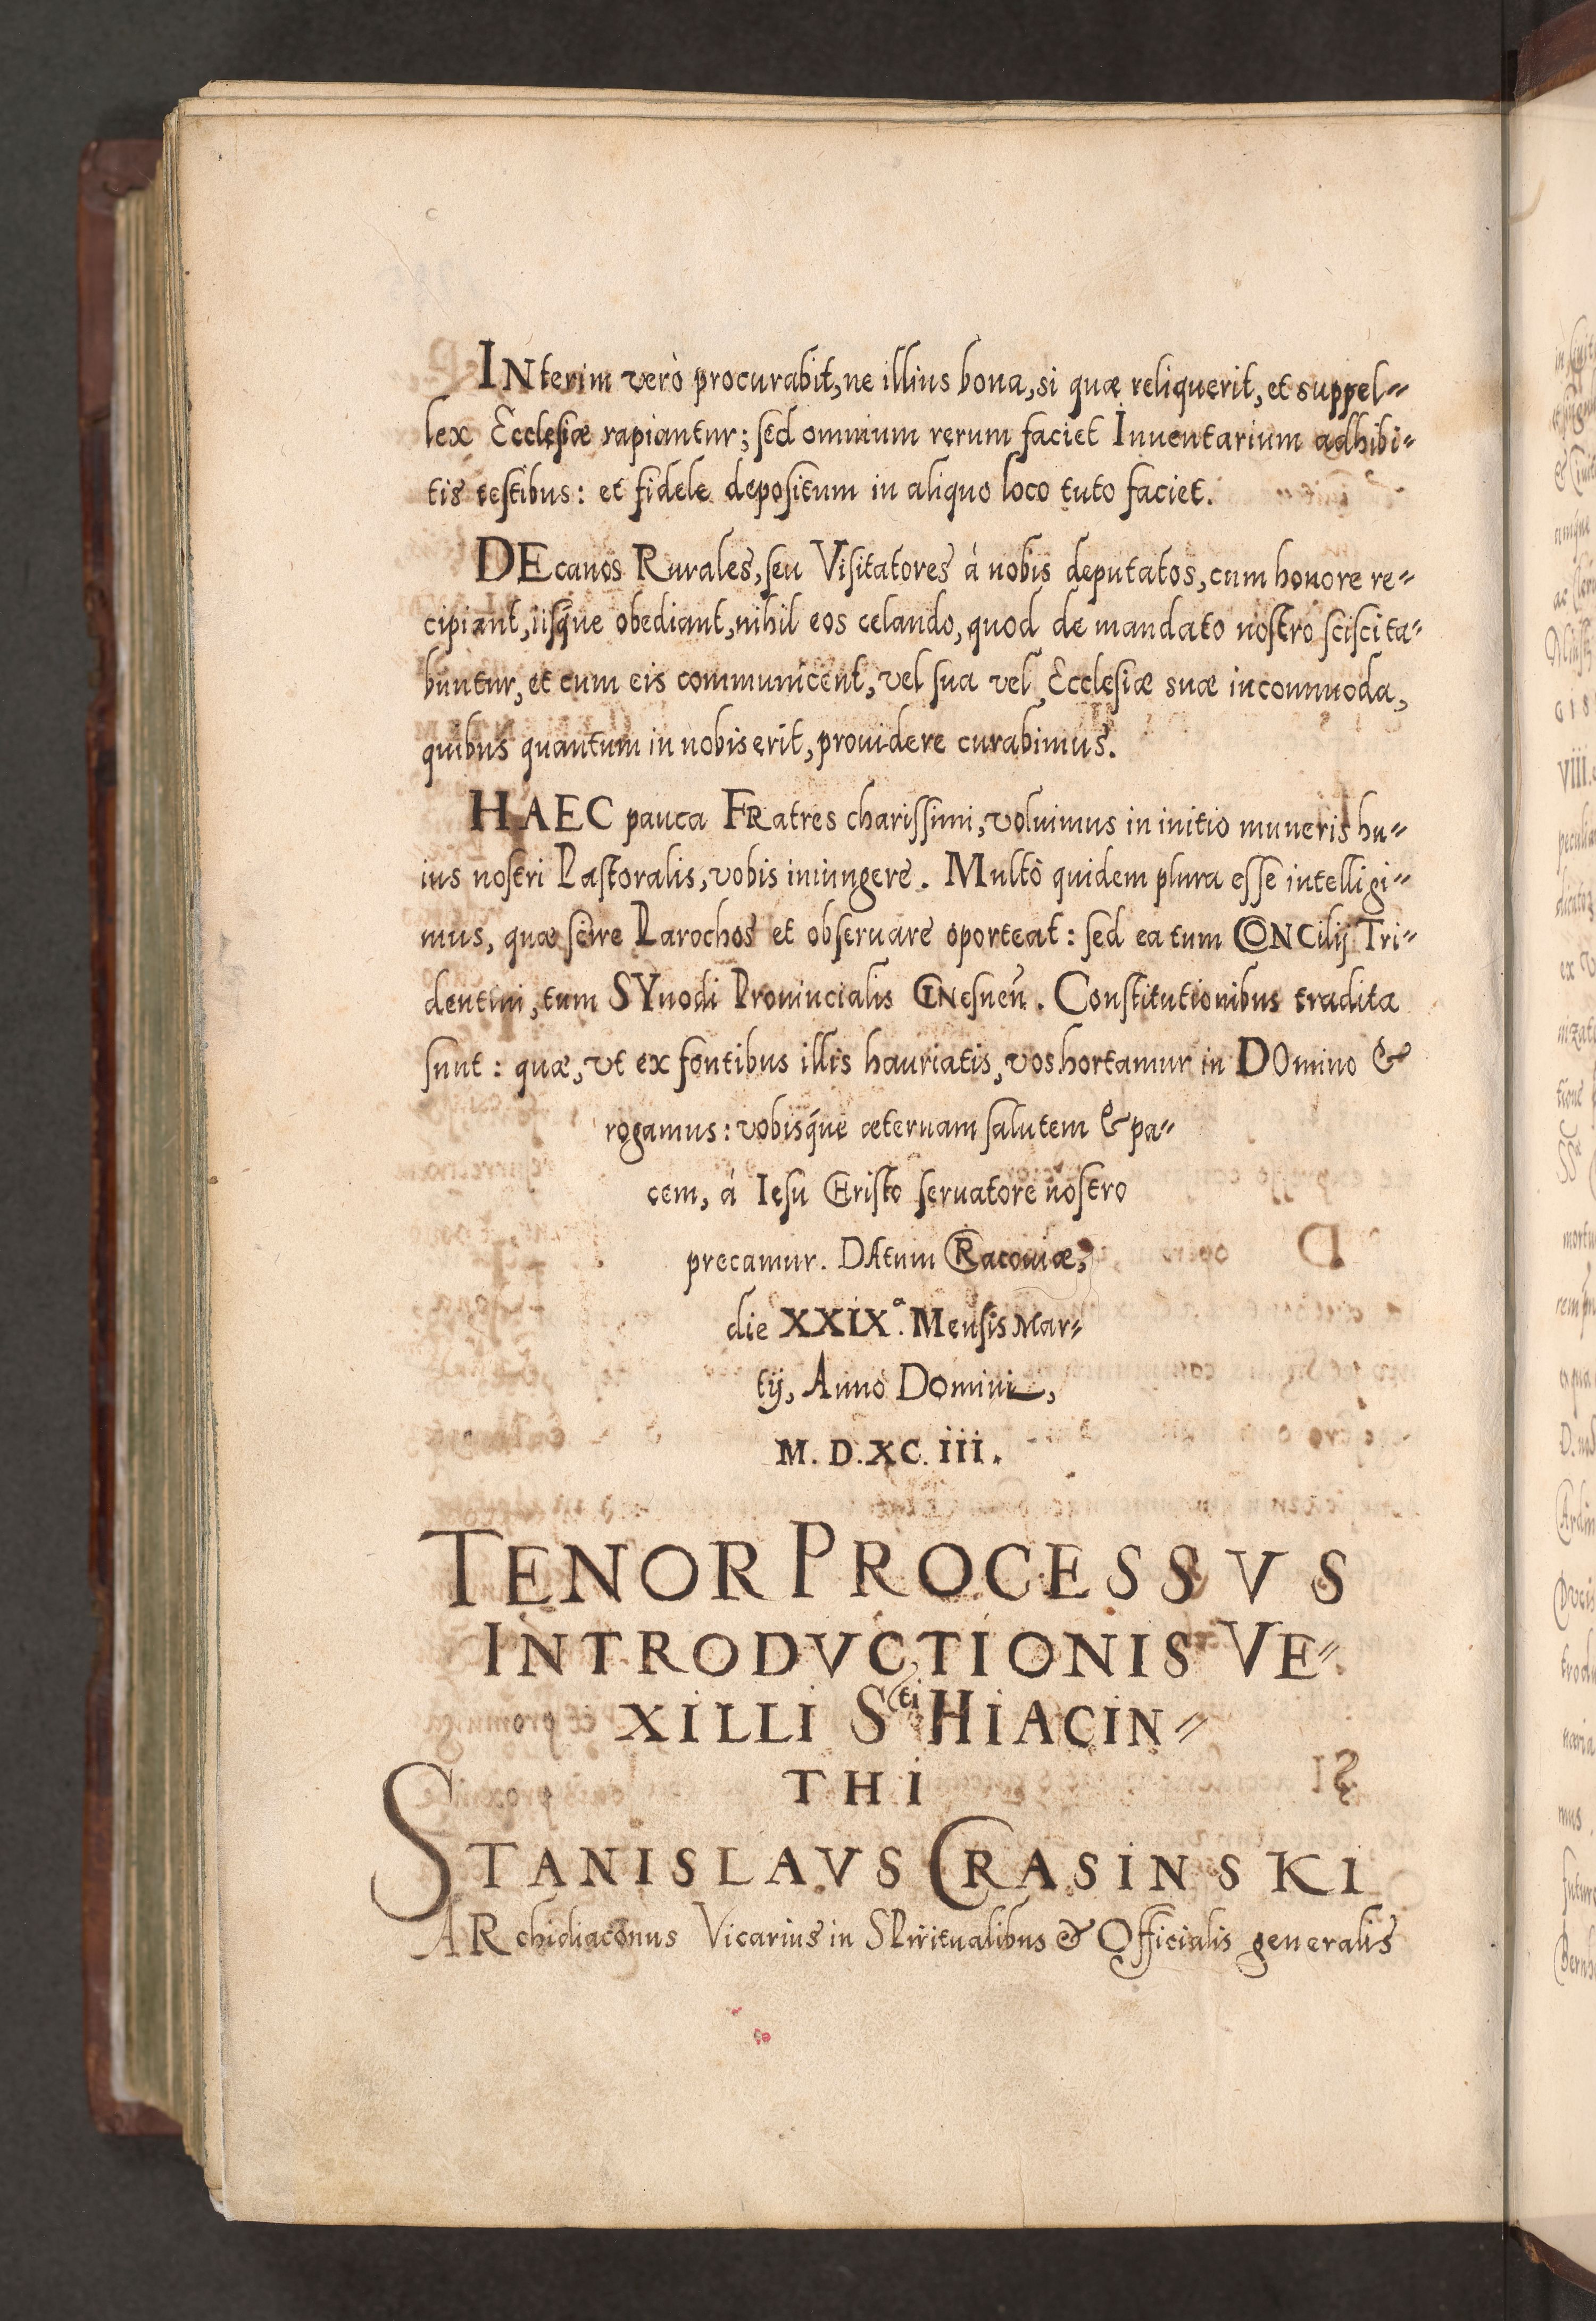 INterim verò procurabit, ne illius bona, si quæ reliquerit, et suppel=
lex Ecclesiæ rapiantur; sed omnium rerum faciet Inuentarium adhibi=
tis testibus: et fidele depositum in aliquo loco tuto faciet.
DEcanos Rurales, seu Visitatores à nobis deputatos, cum honore re=
cipiant, iisque obediant, nihil eos celando, quod de mandato nostro sciscita=
buntur, et cum eis communicent, vel sua vel Ecclesiæ suæ incommoda,
quibus quantum in nobis erit, prouidere curabimus.
HAEC pauca FRatres charissimi, voluimus in initio muneris hu=
ius nostri Pastoralis, vobis iniungere. Multò quidem plura esse intelligi=
mus, quæ scire Parochos et obseruare oporteat: sed ea tum CONCilij Tri=
dentini, tum SYnodi Prouincialis GNesneñ. Constitutionibus tradita
sunt: quæ, vt ex fontibus illis hauriatis, vos hortamur in DOmino &
rogamus: vobisque æternam salutem & pa=
cem, à Iesu CHristo seruatore nostro
precamur. DAtum CRacouiæ,
die XXIXª. Mensis Mar=
tij, Anno Domini,
M. D. XC. iii.
TENOR PROCESSVS
INTRODVCTIONIS VE=
XILLI Sti HIACIN=
THI
STANISLAVS CRASINSKI
ARchidiaconus Vicarius in SPiritualibus & Officialis generalis